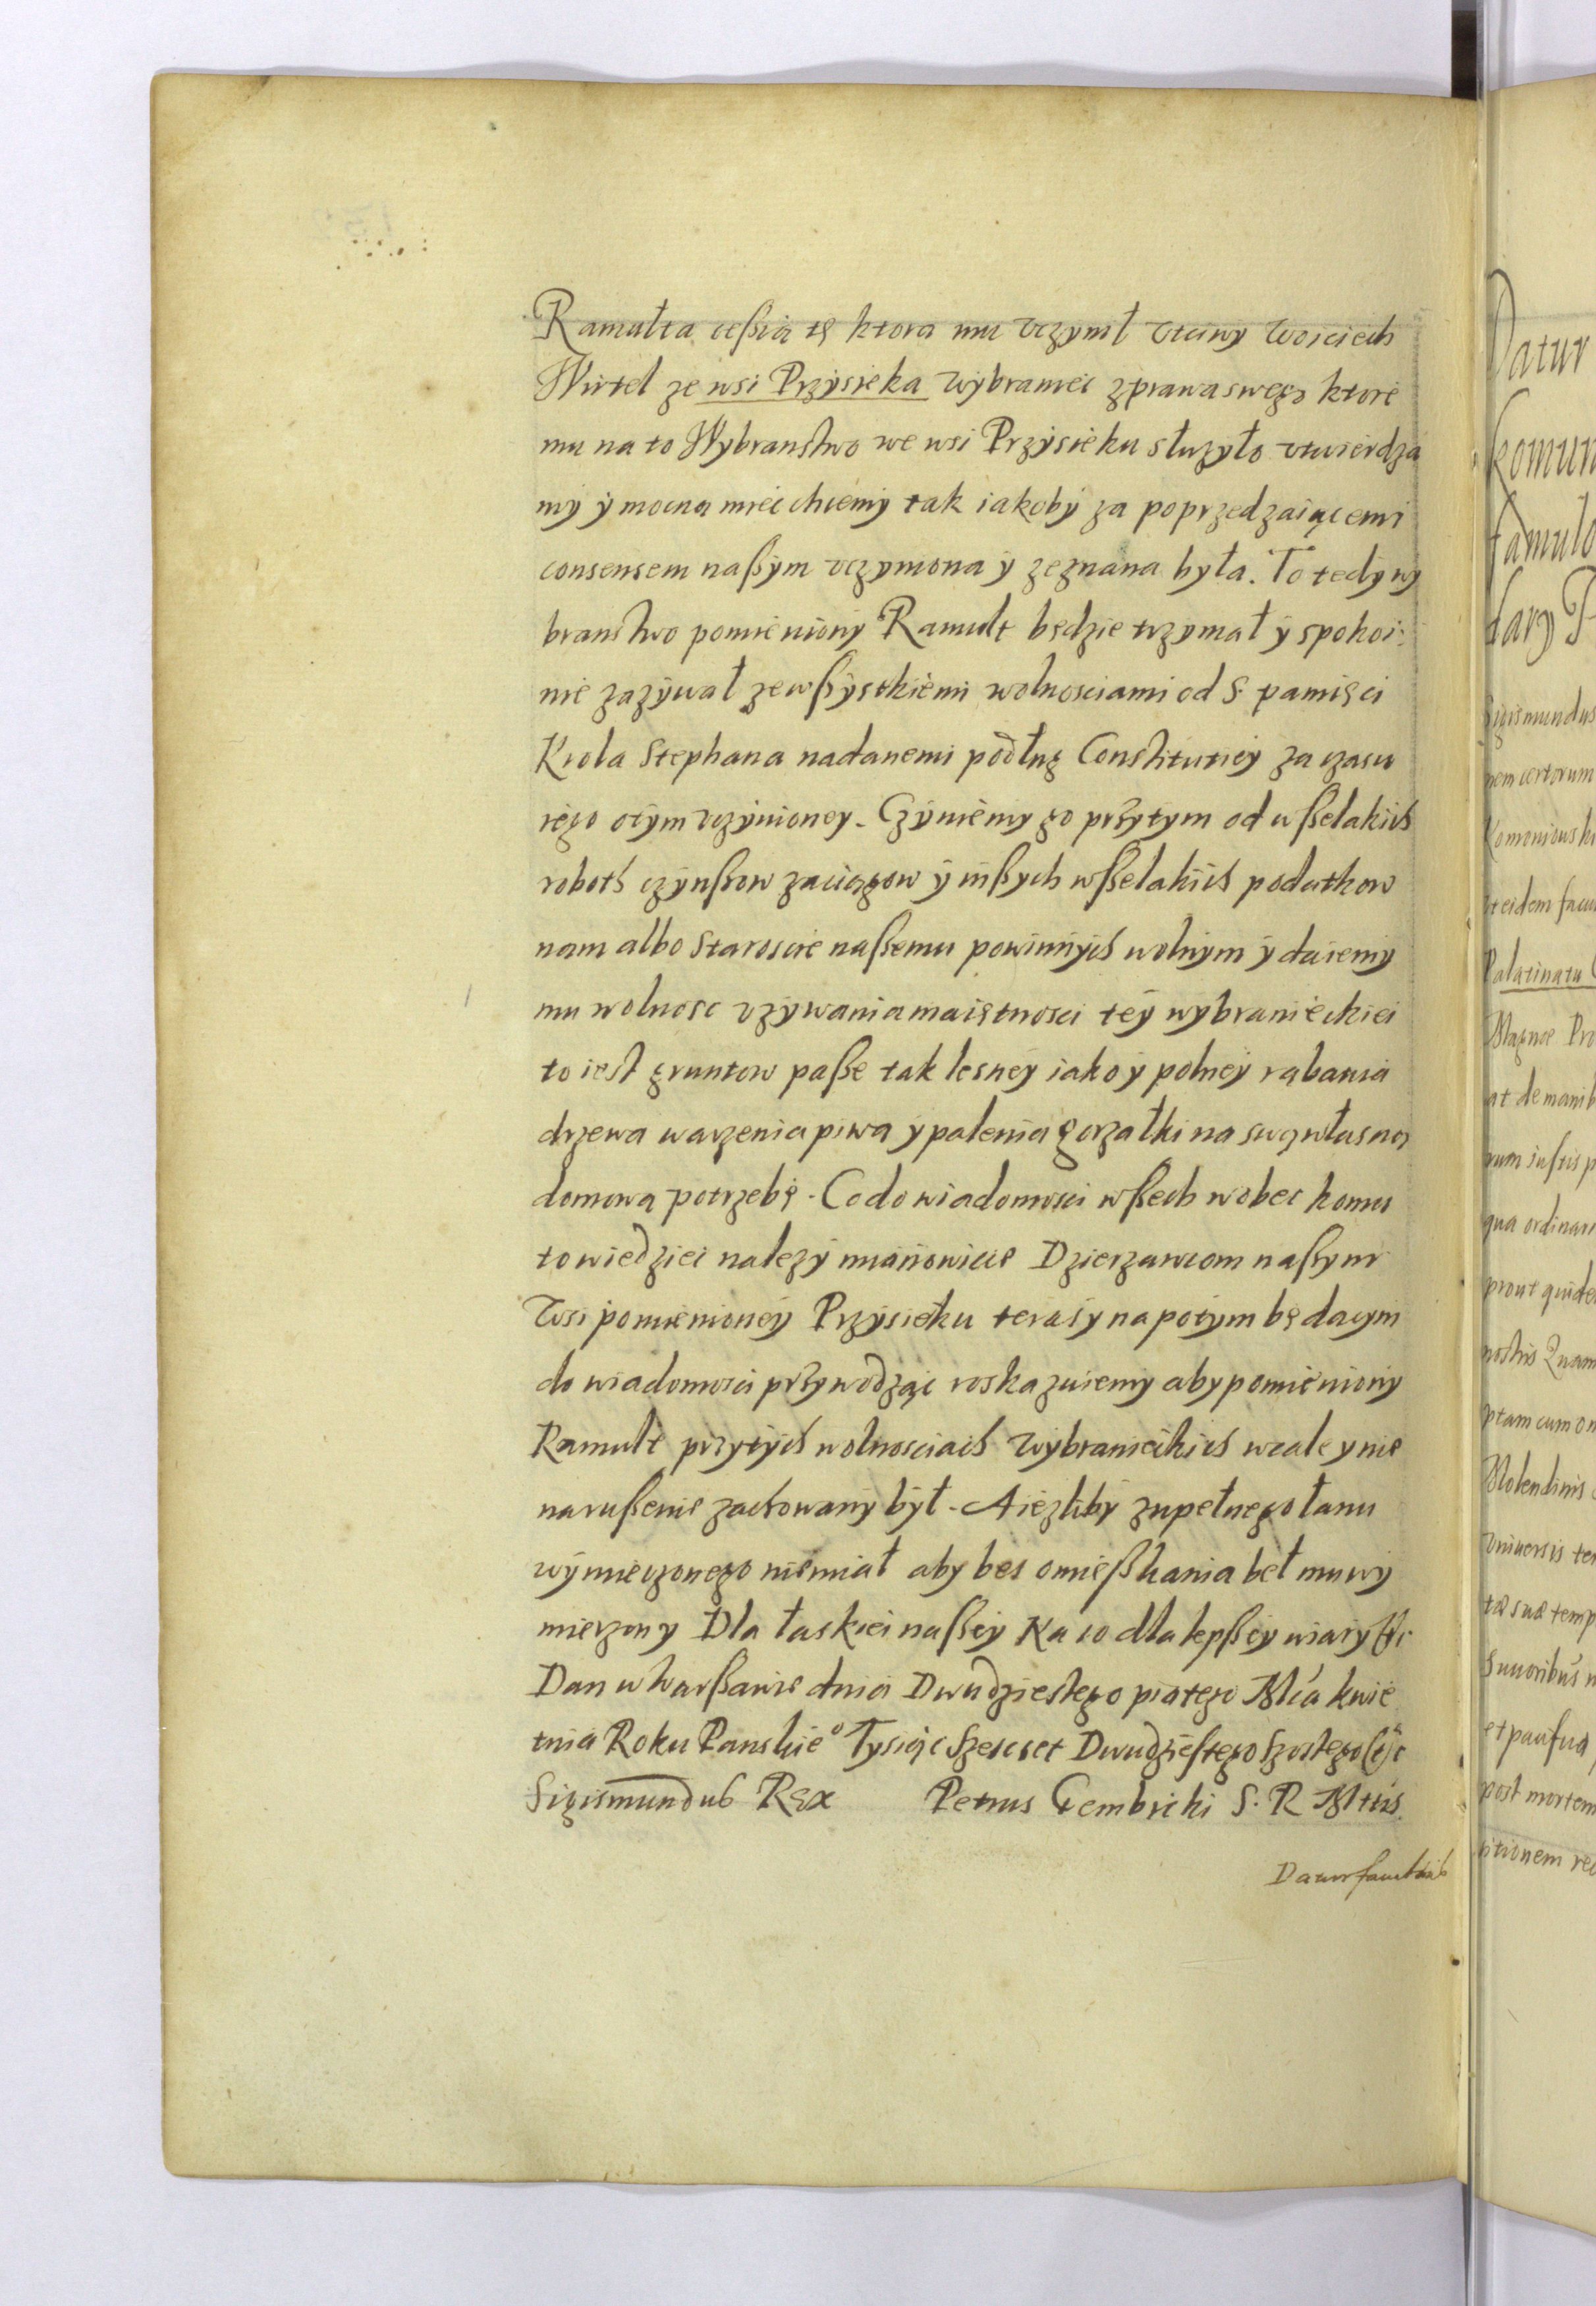 Ramułta cessią tę ktora mu vczynił vtciwy Woiciech
Wirtel ze wsi Przysieka Wybraniec z prawa swego ktore
mu na to Wybranstwo we wsi Przysieku słuzyło vtwierdza
my y mocna miec chcemy tak iakoby za poprzedzaiącemi
consensem naszym vczyniona y zeznana była. To tedy wy
branstwo pomieniony Ramułt będzie trzymał y spokoi:
nie zazywał zewszystkiemi wolnosciami od S. pamięci
Krola Stephana nadanemi podług Constitutiey za czasu
iego otym vczynioney. Czyniemy go przytym od wszelakich
roboth czynszow zaciągow y inszych wszelakich podatkow
nam albo Staroscie naszemu powinnych wolnym y daiemy
mu wolnosc vzywania maiętnosci tey wybranieckiei
to iest gruntow pasze tak lesney iako y polney rąbania
drzewa warzenia piwa y palenia gorzałki na swą własną
domową potrzebę. Co do wiadomosci wszech wobec komu
to wiedziec nalezy mianowicie Dzierzawcom naszym
Wsi pomienioney Przysieku teras y napotym będacym
do wiadomosci przywodząc roskazuiemy aby pomieniony
Ramułt przytych wolnosciach Wybranieckich wcale y nie
naruszenie zachowany był. A iezliby zupełnego łanu
wymierzonego niemiał aby bes omieszkania beł mu wy
mierzony Dla łaskiei naszey Na co dla lepszey wiary Etc
Dan w Warszawie dnia Dwudziestego piątego Mca kwie
tnia Roku Panskie° Tysiąc Szescset Dwudziestego Szostego etc
Sigismundus Rex Petrus Gembicki S. R Mttis
Datur facultas
Datur
Komun
famulo
Sigismundus
nem certorum
Komoniowski
eidem facul
Palatinatu
Magnae Pro
at de manib
rum iustis p
qua ordinari
prout quidem
nostris Quam
ptam cum om
Molendinis
Vniuersis
tae suae temp
post mortem